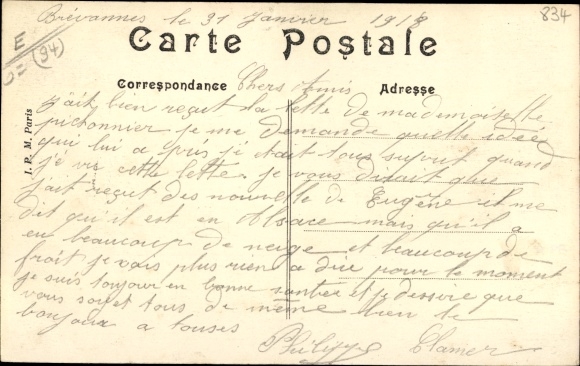 Brévannes le 31 Janvier 1918
834
E
(94)
Carte Postale
Correspondance
Adresse
Chers Amis
J. P. M. Paris
j'ait bien reçut la lettre de mademoiselle
pichonnier je me demande quelle idée
qui lui a pris j'était tous suprit quand
j'é vu cette lettre je vous dirait que
j'ait reçut des nouvelle de Eugène il me
dit qu'il est en Alsace mais qu'il a
eu beaucoup de neige et beaucoup de
froit je vais plus rien a dire pour le moment
je suis toujour en bonne santée et je dessire que
vous soyet tous de même bien le
bonjour a tousses
Philippe Clamer